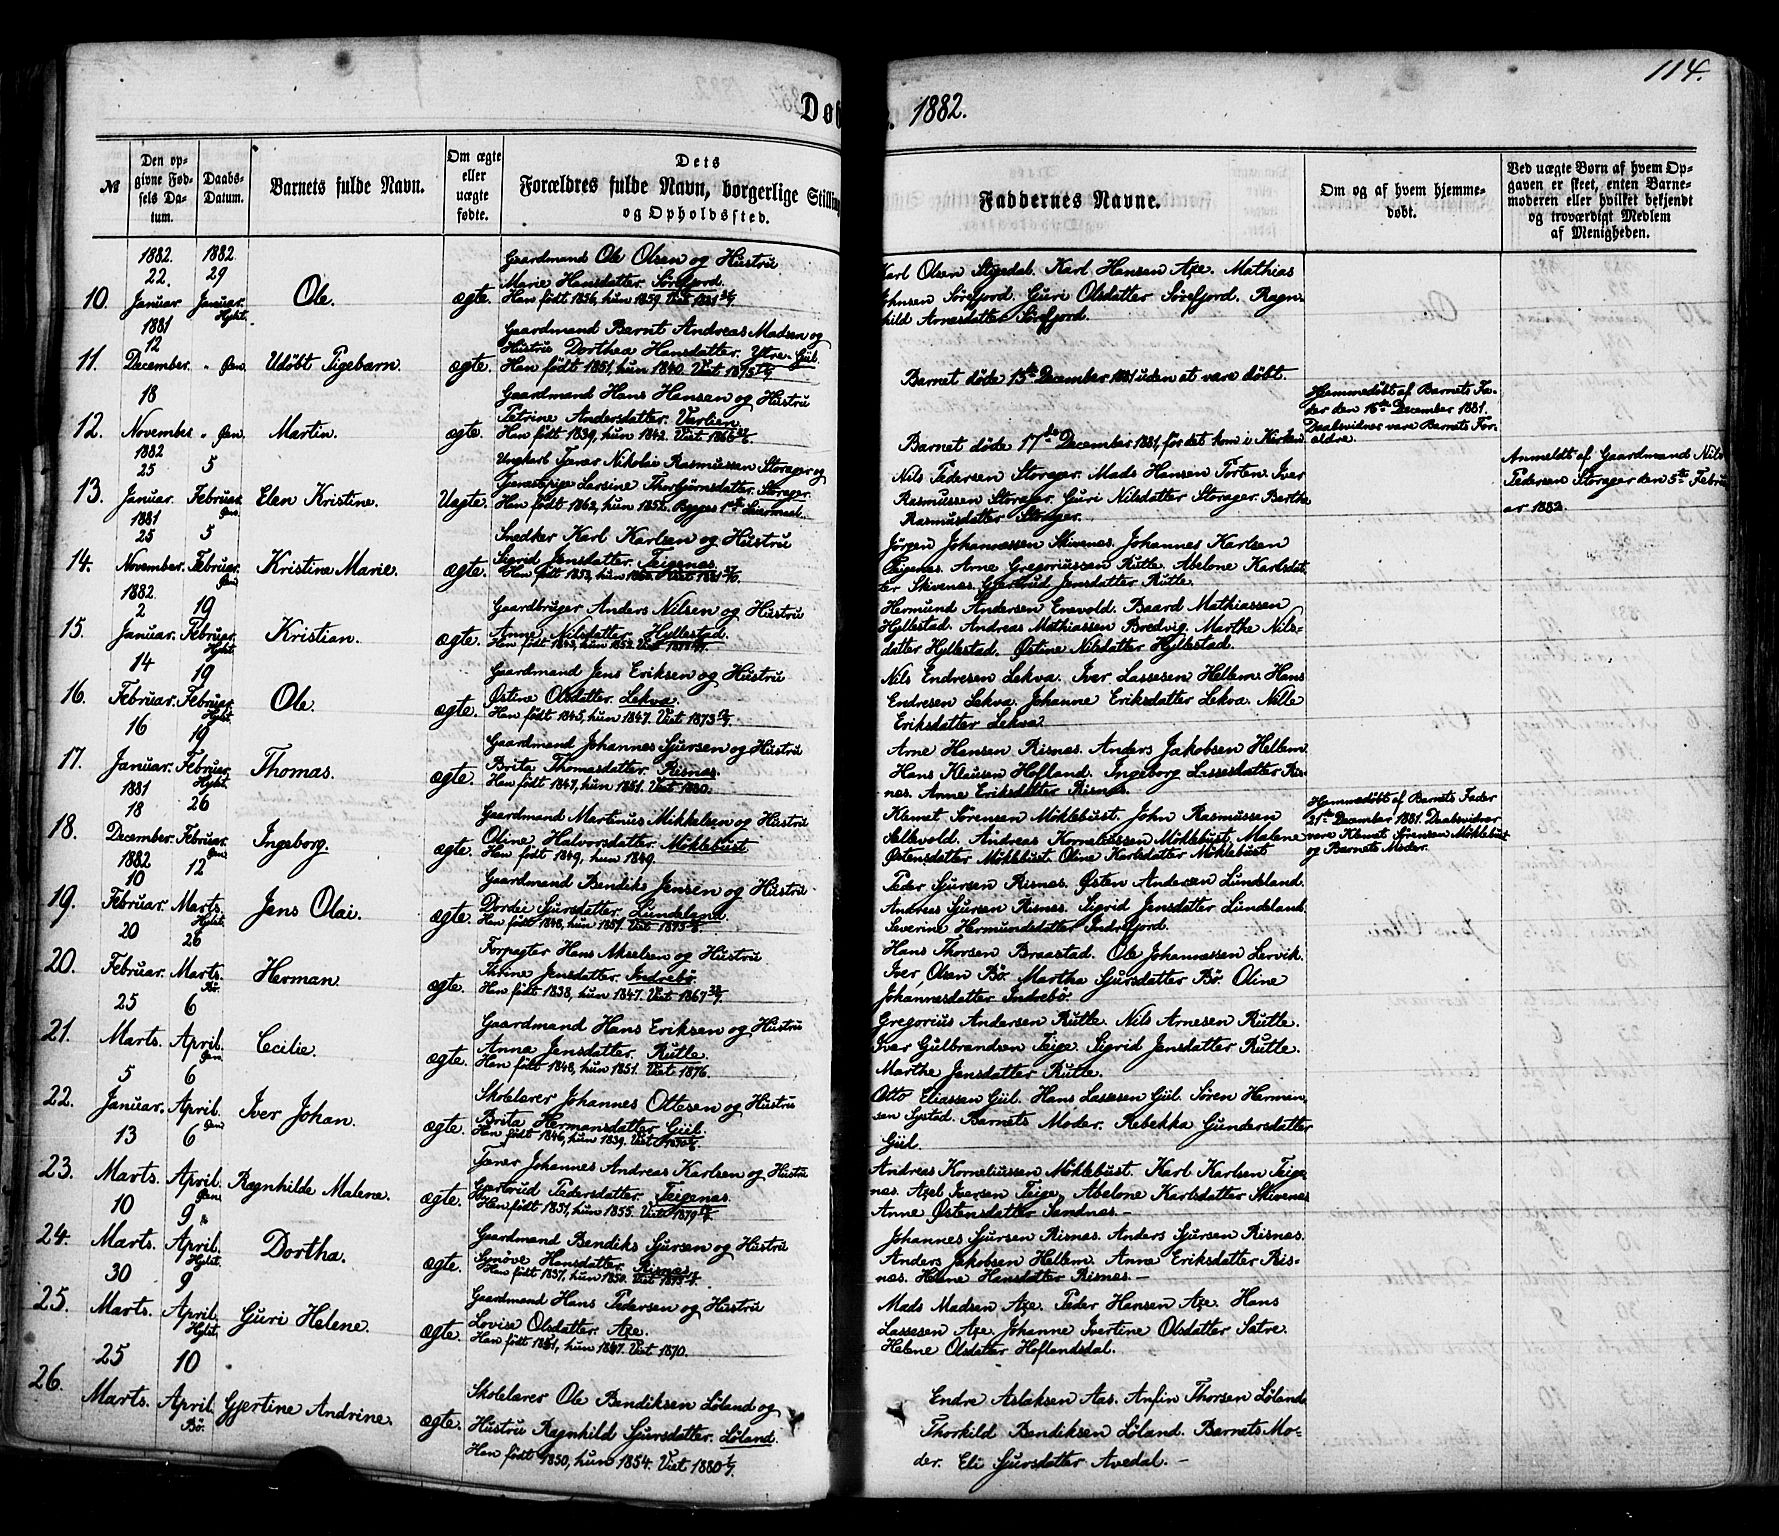 114.
Døb
1882.
№
Den op-
givne Fød-
sels Da-
tum.
Daabs-
Datum.
Barnets fulde Navn.
Om ægte
eller
uægte
fødte.
Dets
Forældres fulde Navn, borgerlige Stilling
og Opholdssted.
Faddernes Navne.
Om og af hvem hjemme-
døbt.
Ved uægte Børn af hvem Op-
gaven er skeet, enten Barne-
moderen eller hvilket bekjendt
og troværdigt Medlem
af Menigheden.
10.
1882.
22.
Januar.
1882.
29
Januar.
Hylst.
Ole.
ægte.
Gaardmand Ole Olsen og Hustru
Marie Hansdatter. Sörefjord.
Han født 1856, hun 1859. Viet 1881
Karl Olsen Stipedal. Karl Hansen Aze. Mathias
Johnsen Sörefjord. Guri Olsdatter Sörefjord. Ragn-
hild Arnesdatter Sörefjord.
11.
1881
12
December.
" Øen.
Udøbt Pigebarn.
ægte.
Gaardmand Bernt Andreas Madsen og
Hustru Dorthea Hansdatter. Ytre-Gül.
Han født 1851, hun 1840. Viet 1875
Barnet døde 15de December 1881 uden at være døbt.
12.
18
November
" Øen.
Martin.
ægte.
Gaardmand Hans Hansen og Hustru
Petrine Andersdatter. Værlien.
Han født 1839, hun 1842. Viet 1866
Barnet døde 17de December 1881, før det kom i Kirken.
Hjemmedøbt af Barnets Fa-
der den 16de December 1881.
Daabsvidner vare Barnets For-
ældre.
13.
1882
25
Januar.
5
Februar.
Øen.
Elen Kristine.
Uægte.
Ungkarl Tjener Nikolai Rasmussen Storager og
Tjenestepige Larsine Thorbjörnsdatter. Storager.
Han født 1862, hun 1852. Begges 1ste Leiermaal.
Nils Pedersen Storager. Mads Hansen Porten. Iver
Rasmussen Storager. Guri Nilsdatter Storager. Berthe
Rasmusdatter Storager.
Anmeldt af Gaardmand Nils
Pedersen Storager den 5te Febru-
ar 1882.
14.
1881
25
November.
5
Februar.
Øen
Kristine Marie.
ægte.
Snedker Karl Karlsen og Hustru
Sigrid Jensdatter. Teigenæs.
Han født 1853, hun 1860. Viet 1881
Jörgen Johannessen Skivenes. Johannes Karlsen
Teigenes. Arne Gregoriussen Rutle. Abelone Karlsdat-
ter Skivenes. Gjertrud Jensdatter Rutle.
15.
1882.
2
Januar.
19
Februar.
Hylst.
Kristian.
ægte.
Gaardbruger Anders Nilsen og Hustru
Anne Nilsdatter. Hyllestad.
Han født 1843, hun 1852. Viet
Hermund Andersen Enevold. Baard Mathiassen
Hyllestad. Andreas Mathiassen Bredvig. Marthe Nils-
datter Hyllestad. Østine Nilsdatter Hyllestad.
16.
14
Februar.
19
Februar.
Hylst.
Ole.
ægte.
Gaardmand Jens Eriksen og Hustru
Østine Olsdatter. Lekva.
Han født 1845, hun 1847. Viet 1873
Nils Endresen Lekva. Iver Lassesen Hellem. Hans
Endresen Lekva. Johanne Eriksdatter Lekva. Nille
Eriksdatter Lekva.
17.
16
Januar.
19
Februar.
Hylst.
Thomas.
ægte.
Gaardmand Johannes Sjursen og Hustru
Brita Thomasdatter. Risnæs.
Han født 1847, hun 1851. Viet 1880.
Arne Hansen Risnæs. Anders Jakobsen Hellem.
Hans Klausen Hofland. Ingeborg Lassesdatter Ris-
næs. Anne Eriksdatter Risnæs.
18.
1881
18
December.
26
Februar.
Øen
Ingeborg.
ægte.
Gaardmand Martinus Mikkelsen og Hustru
Oline Halvorsdatter. Möklebust
Han født 1849, hun 1849.
Klemet Sörensen Möklebust. John Rasmussen
Sellevold. Andreas Korneliussen Möklebust. Malene
Østensdatter Möklebust. Oline Karlsdatter Möklebust
Hemmedøbt af Barnets Fader
21de December 1881. Daabsvidner
vare Klemet Sørensen Möklebust
og Barnets Moder.
19.
1882
10
Februar.
12
Marts.
Hylst.
Jens Olai.
ægte.
Gaardmand Bendiks Jensen og Hustru
Dordei Sjursdatter. Lundeland.
Han født 1848, hun 1851. Viet 1875
Peder Sjursen Risnæs. Østen Andersen Lundeland.
Andreas Sjursen Risnæs. Sigrid Jensdatter Lundeland.
Severine Hermundsdatter Indrefjord.
20.
20
Februar.
26
Marts.
Bø.
Herman.
ægte.
Forpagter Hans Akselsen og Hustru
Thrine Jensdatter. Indrebö.
Han født 1838, hun 1847. Viet 1867
Hans Thorsen Braastad. Ole Johannessen Lervik.
Iver Olsen Bö. Martha Sjursdatter Bö. Oline
Johannesdatter Indrebö.
21.
25
Marts.
6
April.
Øen
Cecilie.
ægte.
Gaardmand Hans Eriksen og Hustru
Anna Jensdatter. Rutle.
Han født 1848, hun 1851. Viet 1876.
Gregorius Andersen Rutle. Nils Arnesen Rutle.
Iver Gulbrandsen Teige. Sigrid Jensdatter Rutle.
Marthe Jensdatter Rutle.
22.
5
Januar.
6
April.
Øen
Iver Johan.
ægte.
Skolelærer Johannes Ottesen og Hustru
Brita Hermansdatter. Gül.
Han født 1846, hun 1839. Viet
Otto Eliassen Gül. Hans Lassesen Gül. Sören Herman-
sen Systad. Barnets Moder. Rebekka Gundersdatter
Gül.
23.
13
Marts.
6
April.
Øen
Ragnhilde Malene.
ægte.
Tjener Johannes Andreas Karlsen og Hustru
Gjertrud Pedersdatter. Teigenæs.
Han født 1851, hun 1855. Viet 1879
Andreas Korneliussen Möklebust. Karl Karlsen Teige-
næs. Axel Iversen Teige. Abelone Karlsdatter Skivenes.
Anne Østensdatter Sandnæs. —
24.
10
Marts.
9
April.
Hylst.
Dortha.
ægte.
Gaardmand Bendiks Sjursen og Hustru
Synöve Hansdatter. Risnæs.
Han født 1837, hun 1850. Viet
Johannes Sjursen Risnæs. Anders Sjursen Risnæs.
Anders Jakobsen Hellem. Anne Eriksdatter Ris-
næs. Helene Hansdatter Risnæs. —
25.
30
Marts.
9
April.
Hylst.
Guri Helene.
ægte.
Gaardmand Hans Pedersen og Hustru
Lovise Olsdatter. Aze.
Han født 1841, hun 1847. Viet 1870.
Mads Madsen Aze. Peder Hansen Aze. Hans
Lassesen Aze. Johanne Ivertine Olsdatter Sætre.
Helene Olsdatter Hoflandsdal.
26.
25
Marts.
10
April.
Bø.
Gjertine Andrine.
ægte.
Skolelærer Ole Bendiksen Löland og
Hustru Ragnhild Sjursdatter. Löland.
Han født 1850, hun 1854. Viet 1880
Endre Aslaksen Aas. Anfin Thorsen Löland.
Thorkild Bendiksen Löland. Barnets Mo-
der. Eli Sjursdatter Avedal. —